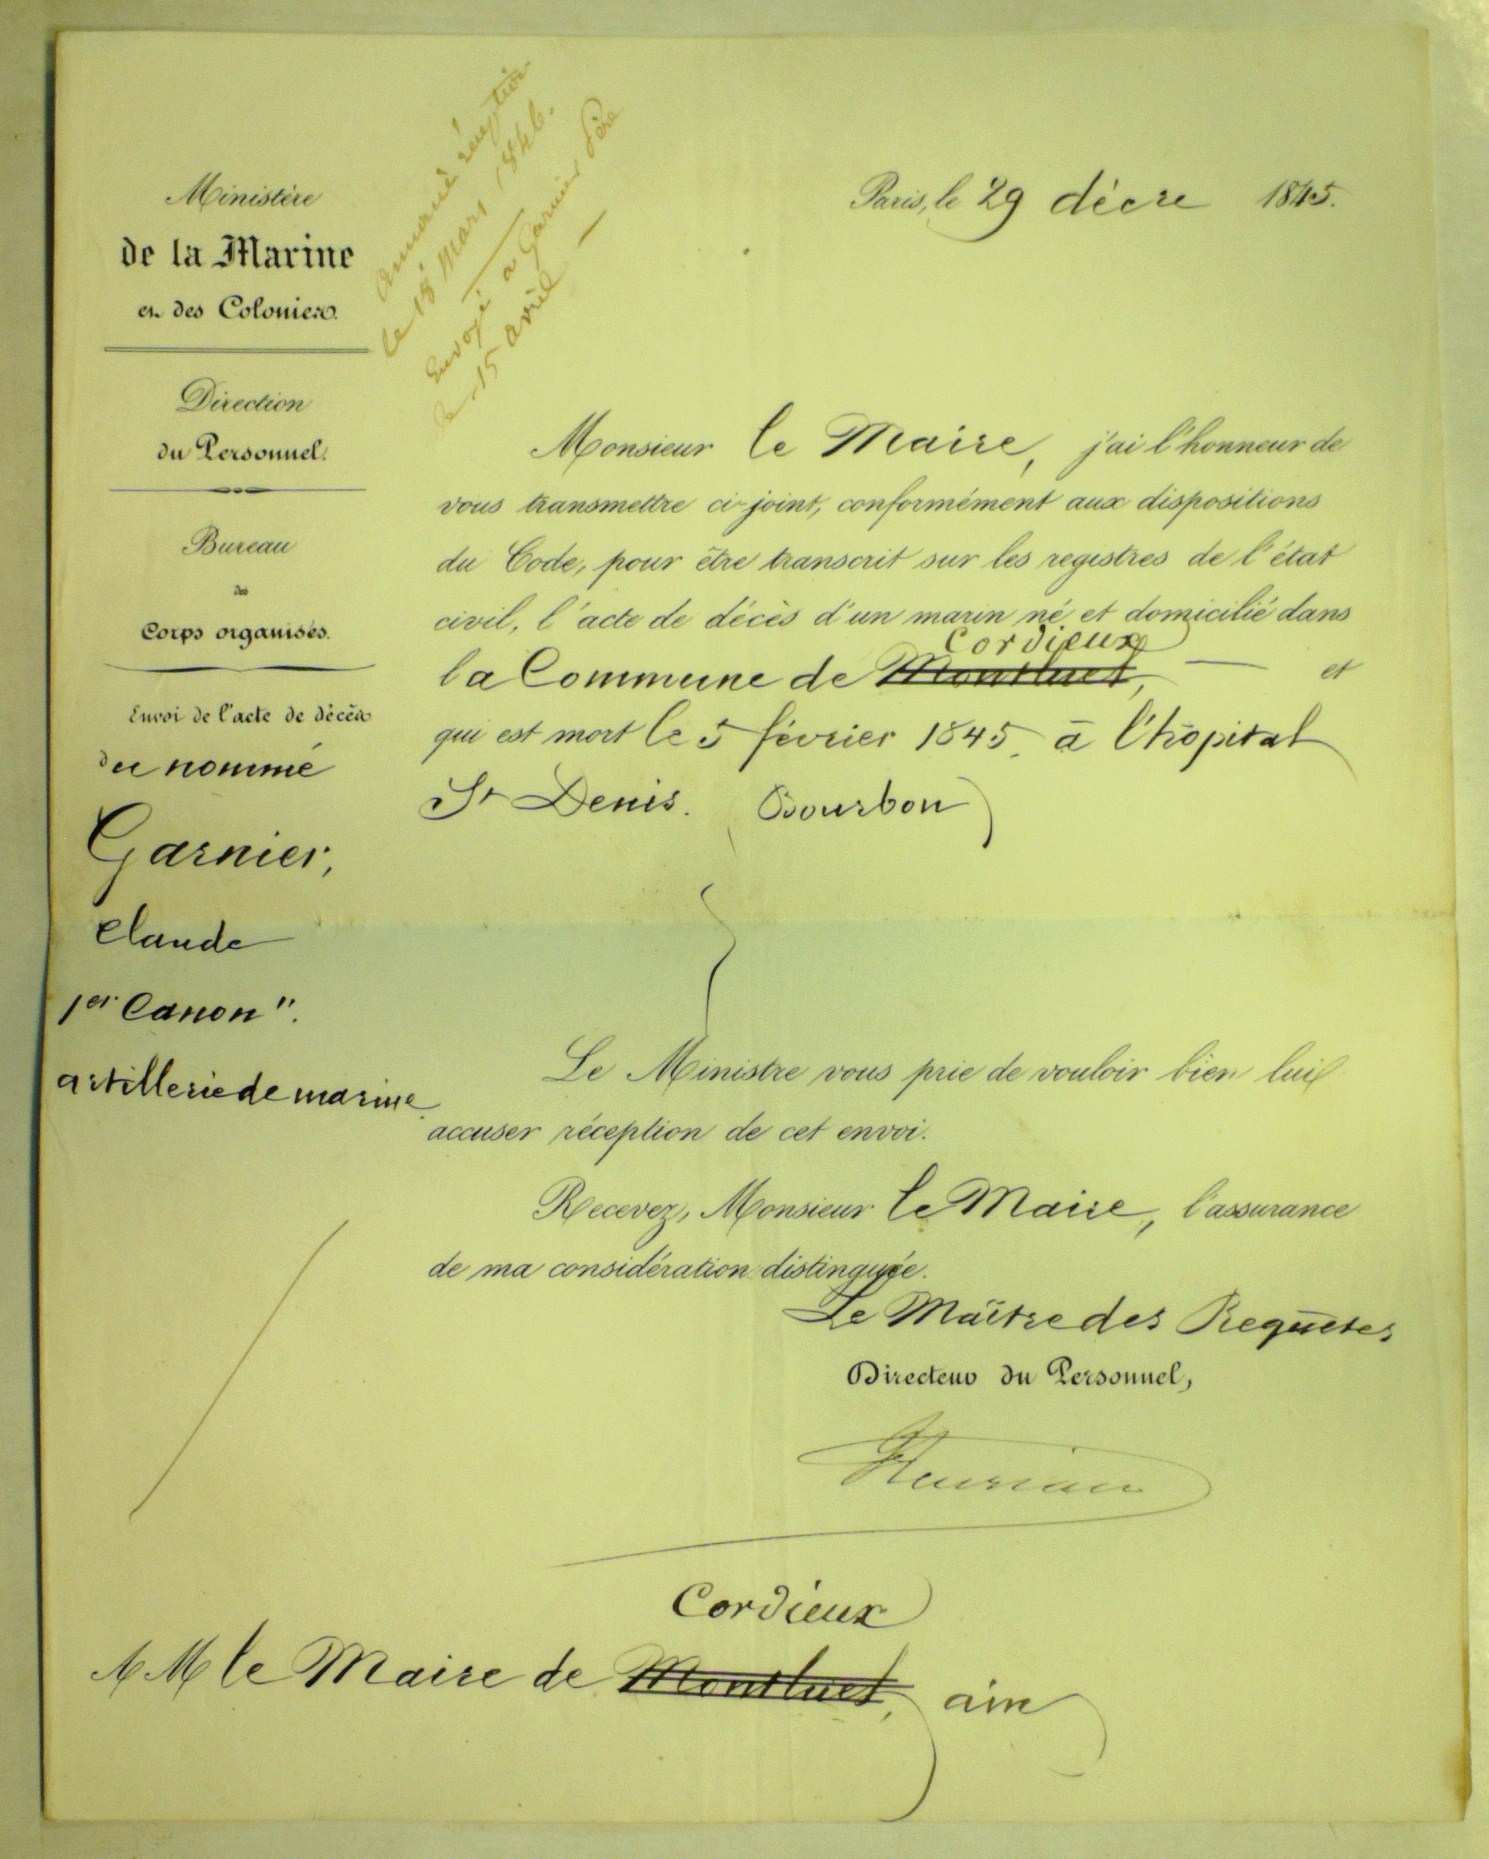 Ministère
de la Marine
et des Colonies.
Direction
du Personnel.
Bureau
des
Corps organisés.
Envoi de l'acte de décès
du nommé
Garnier,
Claude
1er Canon".
artillerie de marine
réception
le 18 Mars 1846.
Envoyé a Garnier Père
le 15 avril
Paris, le 29 décre 1845.
Monsieur le Maire, j'ai l'honneur de
vous transmettre ci-joint, conformément aux dispositions
du Code, pour être transcrit sur les registres de l'état
civil, l'acte de décès d'un marin né et domicilié dans
Cordieux
la Commune de Montluel, et
qui est mort le 5 février 1845 à l'hôpital
St Denis. (Bourbon)
Le Ministre vous prie de vouloir bien lui
accuser réception de cet envoi.
Recevez, Monsieur le Maire, l'assurance
de ma considération distinguée.
Le Maître des Requêtes
Directeur du Personnel,
Cordieux
A M le Maire de Montluel, ain